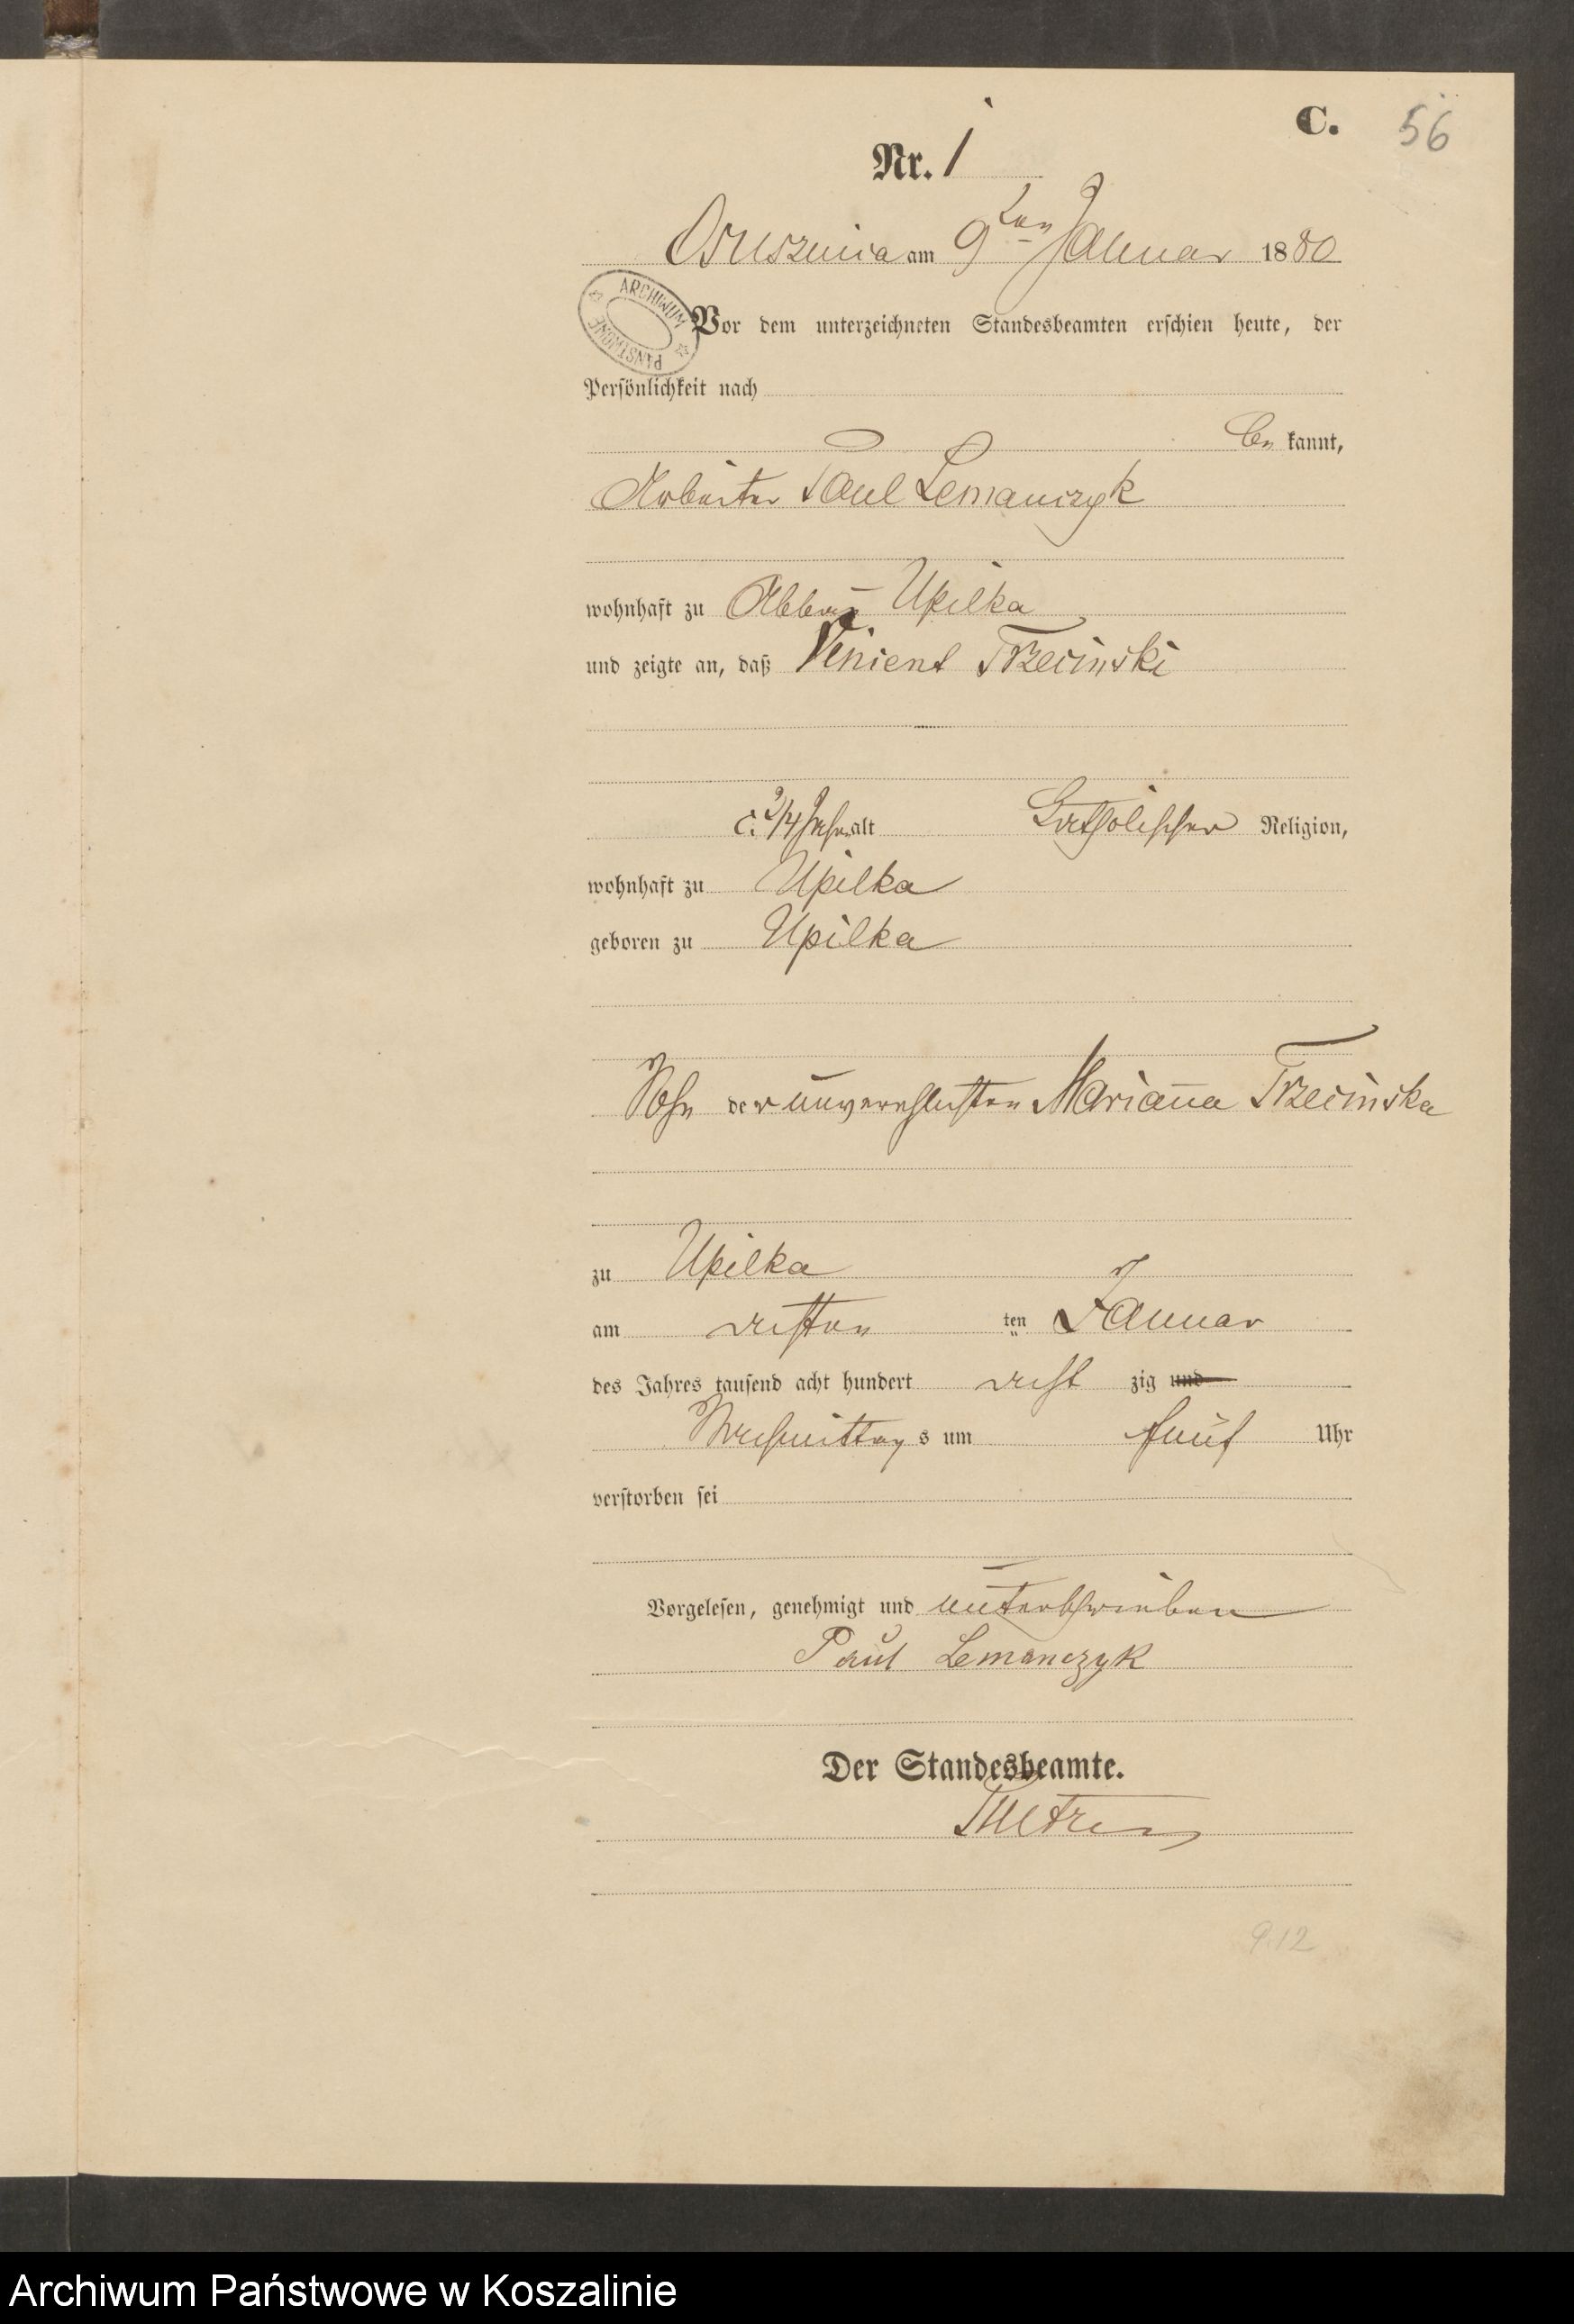 C. 56
Nr. 1
Osusznica am 9ten Januar 1880
ARCHIWUM PAŃSTWOWE
Vor dem unterzeichneten Standesbeamten erschien heute, der
Persönlichkeit nach
be kannt,
Arbeiter Paul Lemanczyk
wohnhaft zu Abbau Upilka
und zeigte an, daß Vincent Trzecinski
c. 3/4 Jahr alt Katholischer Religion,
wohnhaft zu Upilka
geboren zu Upilka
Sohn der unverehlichten Marianna Trzecinska
zu Upilka
am achten ten Januar
des Jahres tausend acht hundert acht zig und
Nachmittag s um fünf Uhr
verstorben sei
Vorgelesen, genehmigt und unterschrieben
Paul Lemanczyk
Der Standesbeamte.
9.12
Archiwum Państwowe w Koszalinie